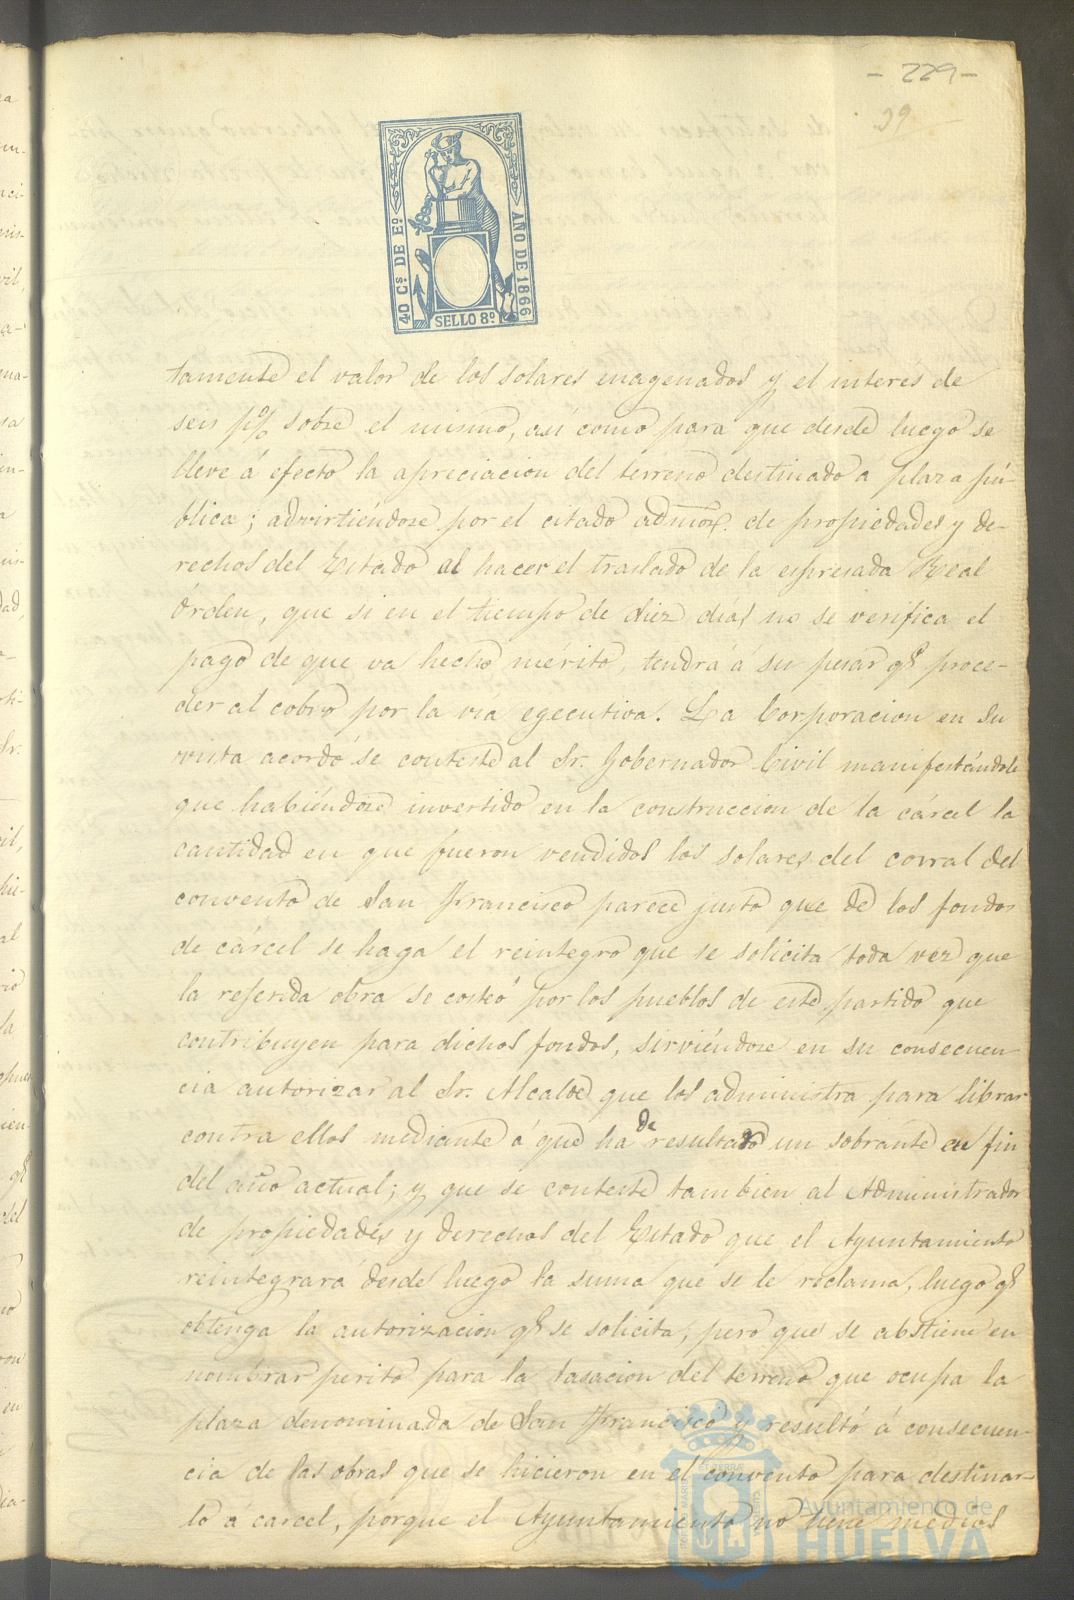 - 229 -
29
40 Cs DE Eo
AÑO DE 1866
SELLO 8o
tamente el valor de los solares enagenados y el interés de
seis p% sobre el mismo, así como para que desde luego se
lleve á efecto la apreciacion del terreno destinado a plaza pú-
blica; advirtiéndose por el citado admor. de propiedades y de-
rechos del Estado al hacer el traslado de la espresada Real
Órden, que si en el tiempo de diez dias no se verifica el
pago de que va hecho mérito, tendrá á su pesar qe proce-
der al cobro por la via egecutiva. La Corporacion en su
vista acordó se conteste al Sr. Gobernador Civil manifestándole
que habiéndose invertido en la construccion de la cárcel la
cantidad en que fueron vendidos los solares del corral del
convento de San Francisco parece justo que de los fondos
de cárcel se haga el reintegro que se solicita toda vez que
la referida obra se costeó por los pueblos de este partido que
contribuyen para dichos fondos, sirviéndose en su consecuen
cia autorizar al Sr. Alcalde que los administra para librar
contra ellos mediante á que ha de resultar un sobrante en fin
del año actual; y que se conteste tambien al Administrador
de propiedades y derechos del Estado que el Ayuntamiento
reintegrará desde luego la suma que se le reclama, luego qe
obtenga la autorizacion qe se solicita; pero que se abstiene en
nombrar perito para la tasacion del terreno que ocupa la
plaza denominada de San Francisco y resultó á consecuen-
cia de las obras que se hicieron en el convento para destinar-
lo á carcel, porque el Ayuntamiento no tiene medios
Ayuntamiento de
HUELVA